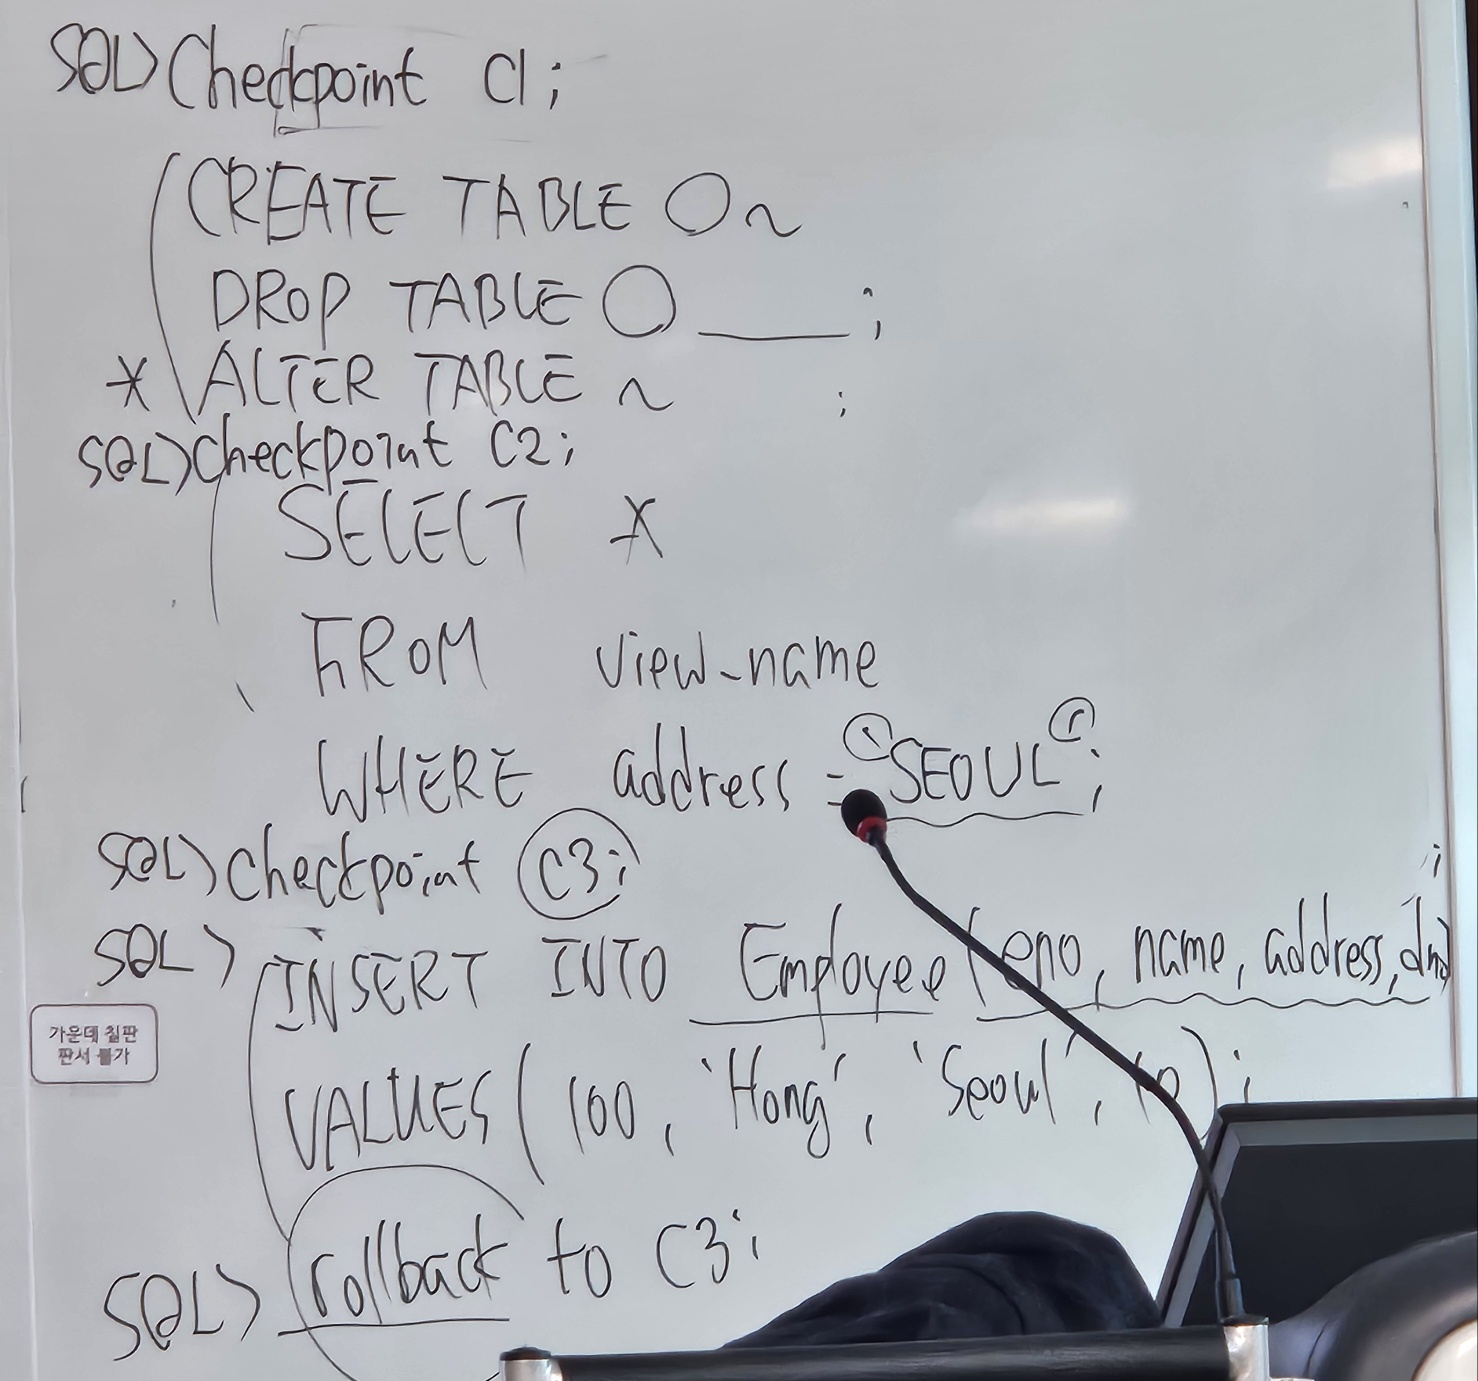 SQL> Checkpoint C1;
CREATE TABLE ○ ~
DROP TABLE ○ ____ ;
* ALTER TABLE ~ ;
SQL> Checkpoint C2;
SELECT *
FROM view_name
WHERE address = 'SEOUL';
SQL> Checkpoint C3;
;
SQL> INSERT INTO Employee (eno, name, address,
VALUES (100, 'Hong', 'Seoul', );
SQL> rollback to C3;
가운데 칠판
판서 불가